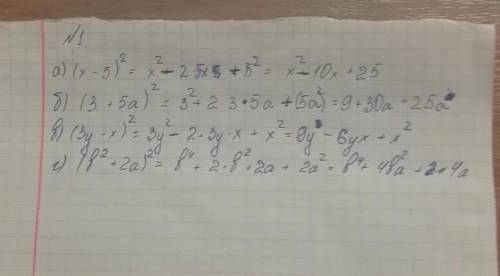 №1
а) (x - 5)² = x² - 2·5x + 5² = x² - 10x + 25
б) (3 + 5a)² = 3² + 2·3·5a + (5a²) = 9 + 30a + 25a²
в) (3y - x)² = 3y² - 2·3y·x + x² = 9y² - 6yx + x²
г) (b² + 2a)² = b⁴ + 2·b²·2a + 2a² = b⁴ + 4b²a + 4a